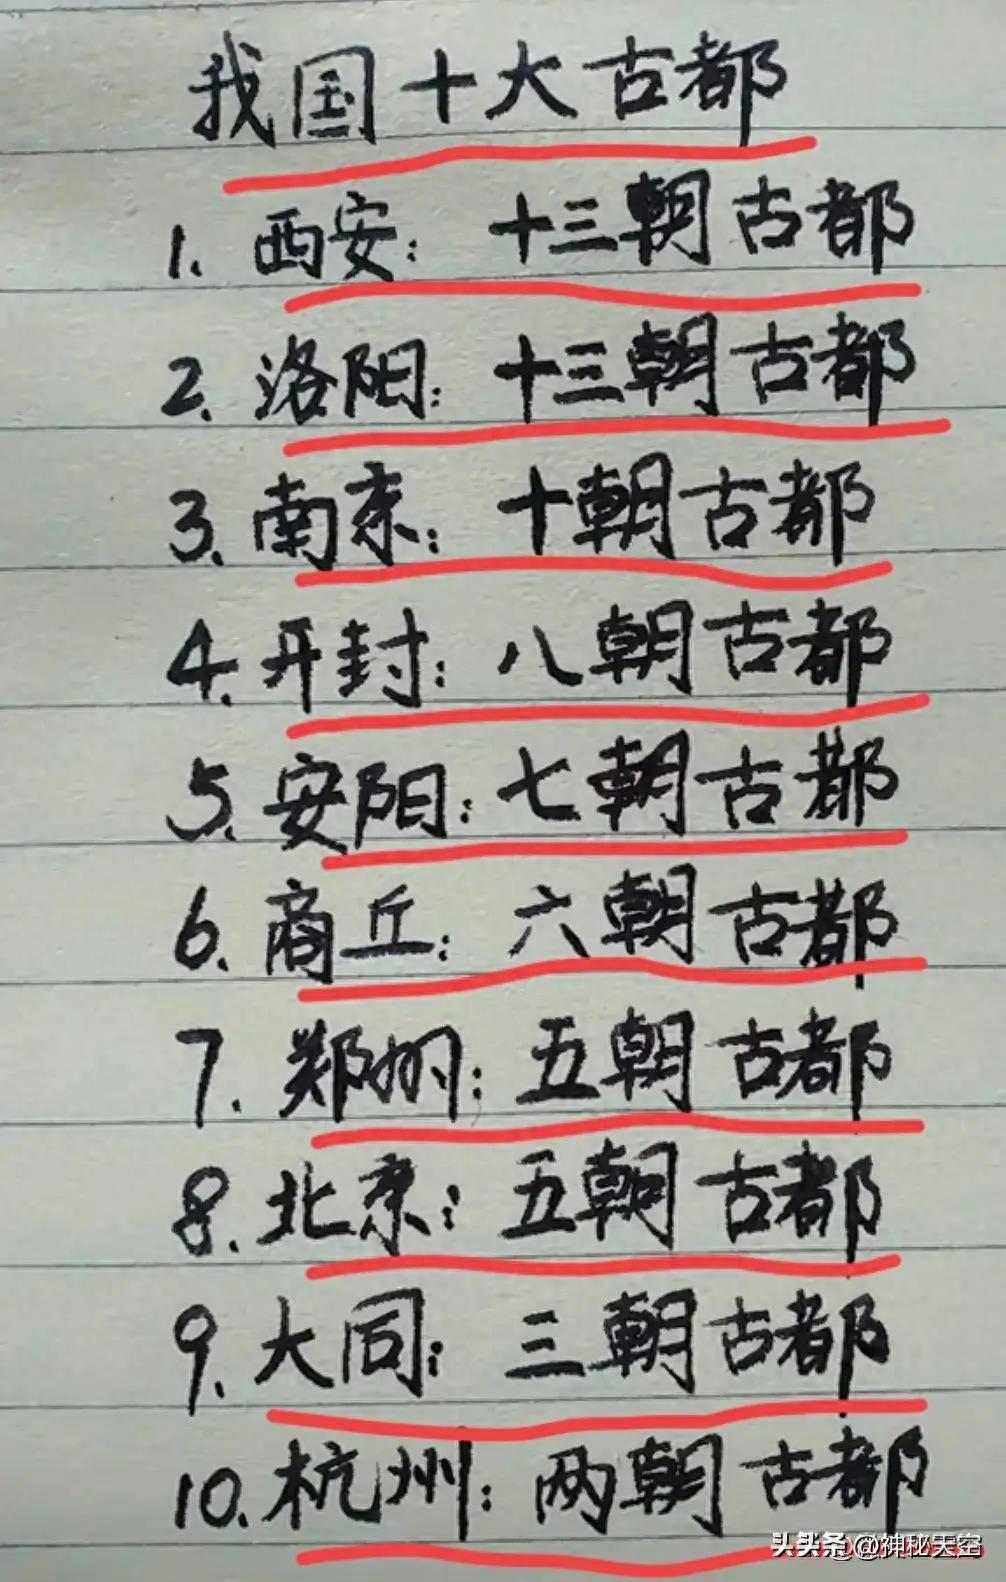 我国十大古都
1. 西安: 十三朝古都
2. 洛阳: 十三朝古都
3. 南京: 十朝古都
4. 开封: 八朝古都
5. 安阳: 七朝古都
6. 商丘: 六朝古都
7. 郑州: 五朝古都
8. 北京: 五朝古都
9. 大同: 三朝古都
10. 杭州: 两朝古都
头条@神秘天空